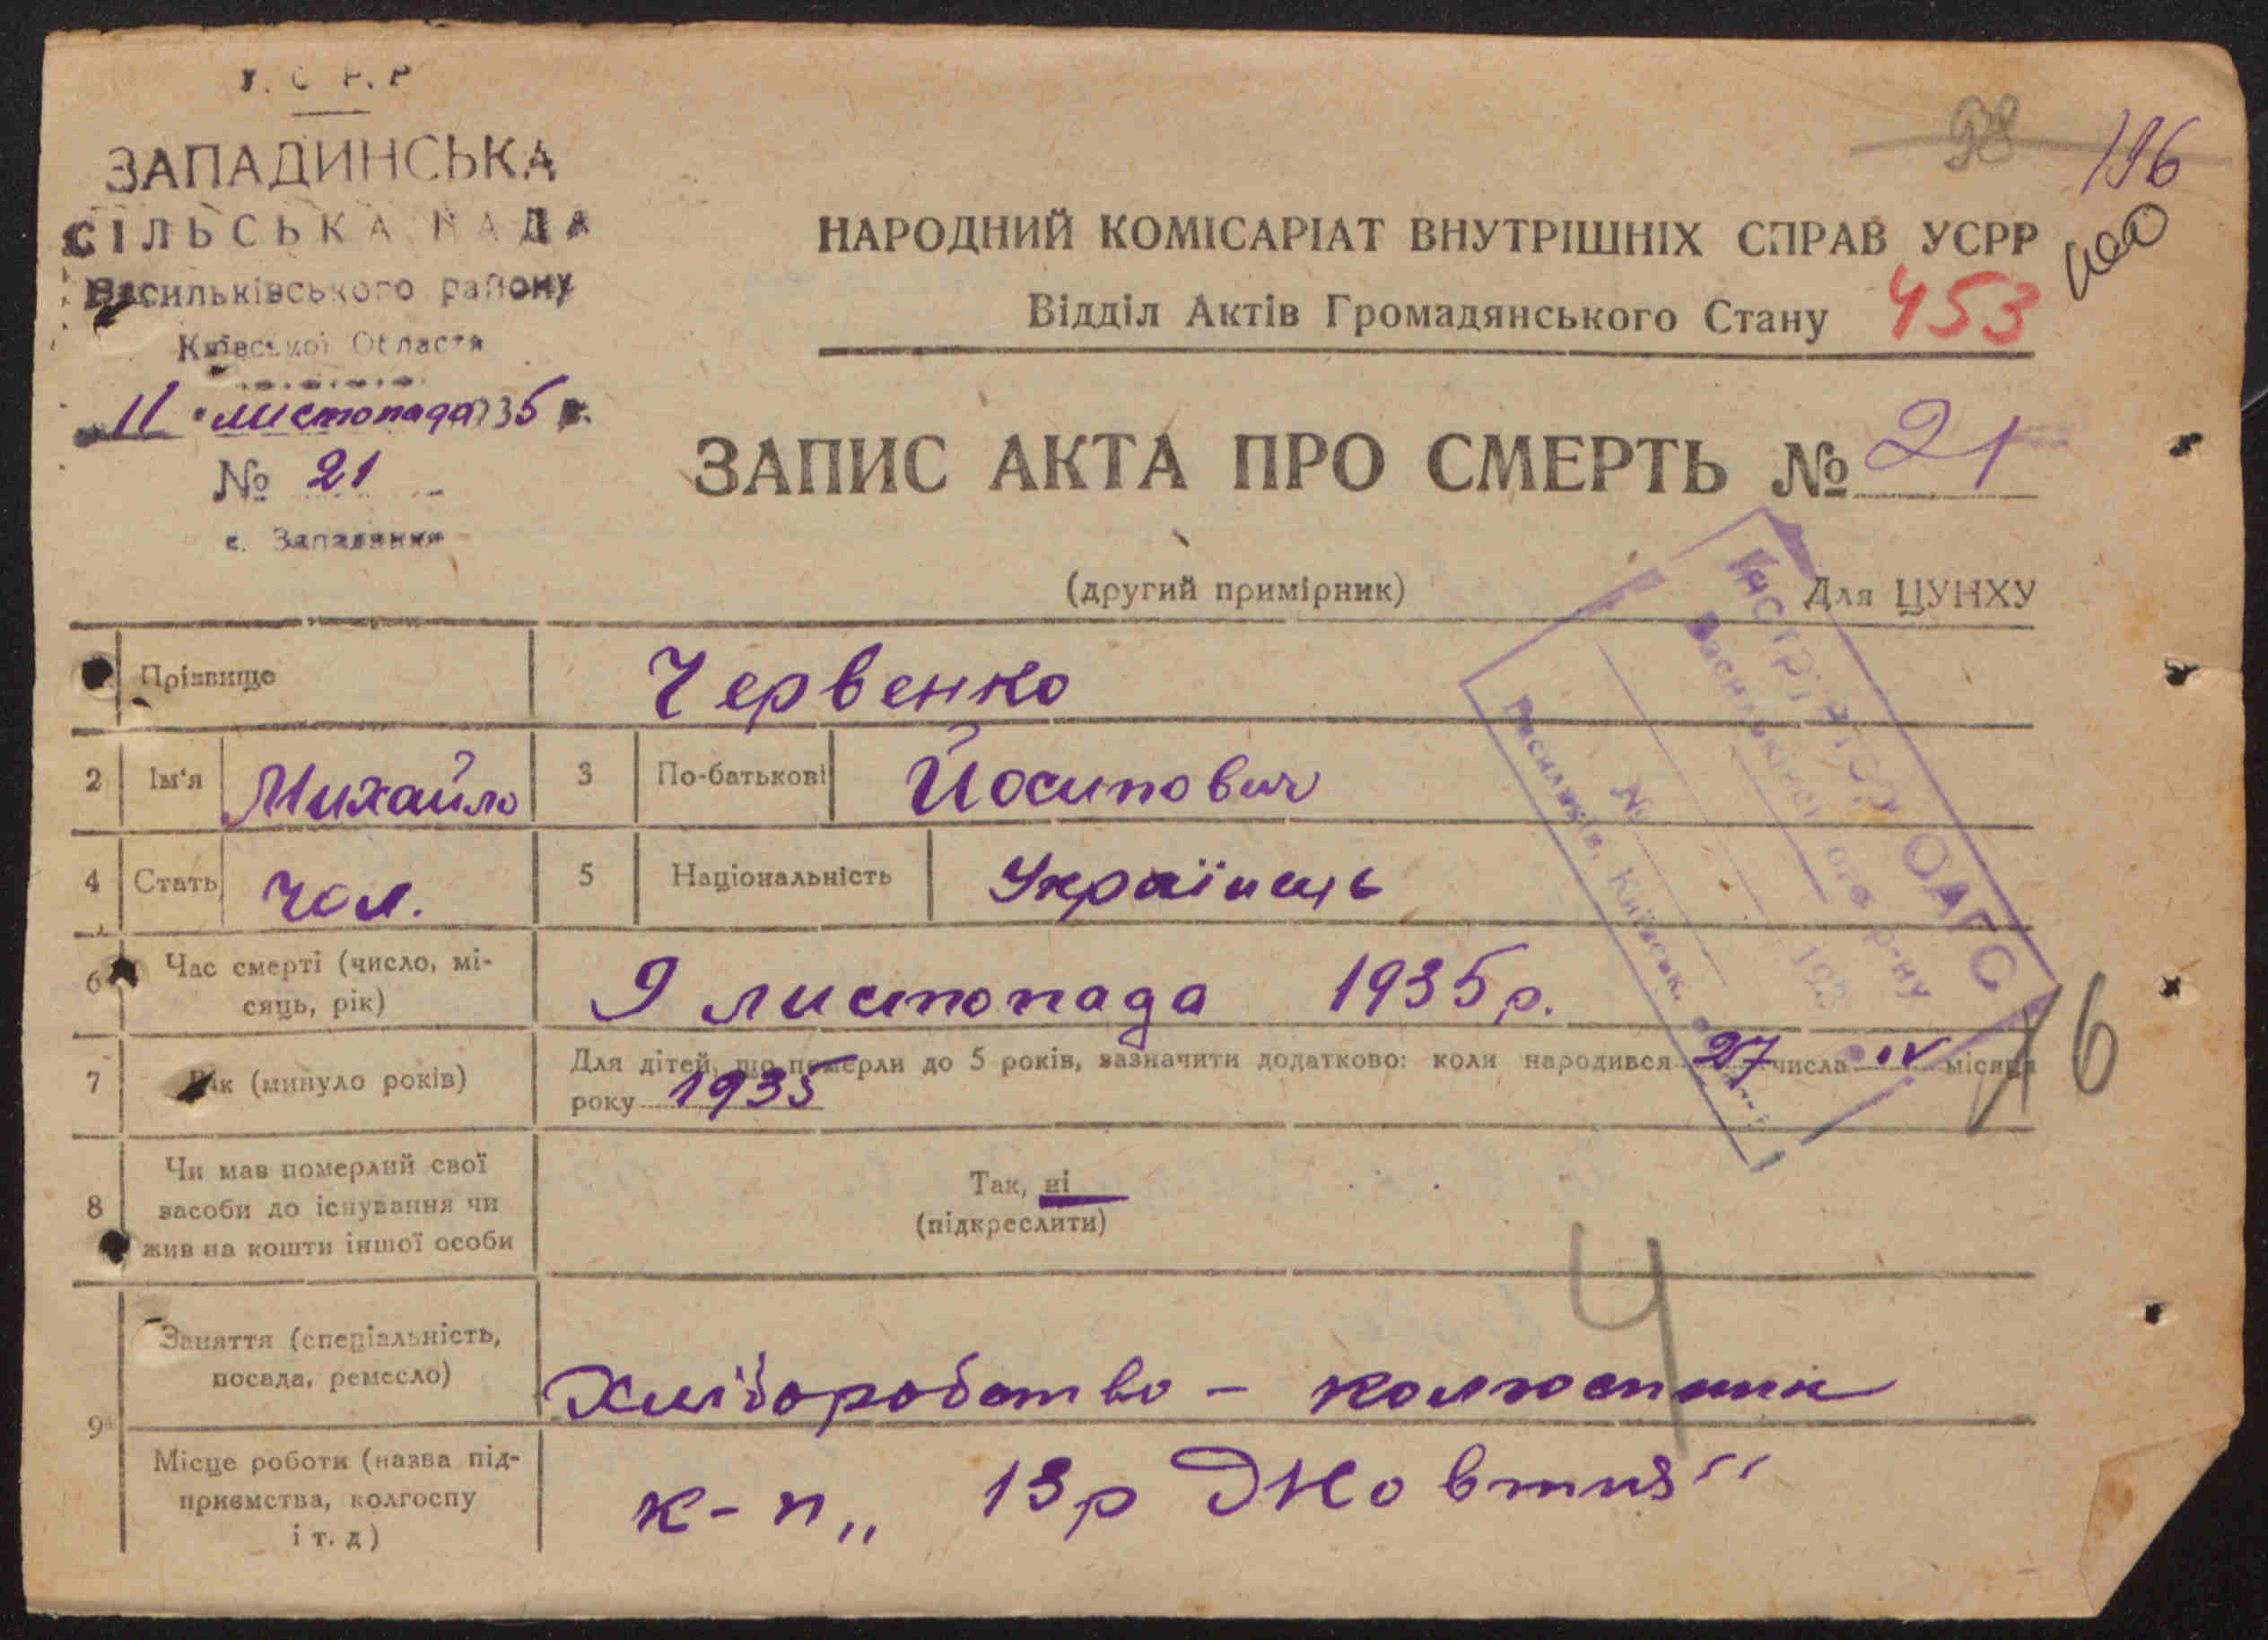 У. С Р. Р
ЗАПАДИНСЬКА
СІЛЬСЬКА РАДА
Васильківського району
Київської Області
11 листопада 1935 р.
№ 21
с. Западинка
98 196
НАРОДНИЙ КОМІСАРІАТ ВНУТРІШНІХ СПРАВ УСРР
Відділ Актів Громадянського Стану 453
ЗАПИС АКТА ПРО СМЕРТЬ № 21
(другий примірник) Для ЦУНХУ
Інспектор ОАГС
Васильківського р-ну
№ 193
Васильків, Київськ.
Прізвище Червенко
2 Ім'я Михайло 3 По-батькові Йосипович
4 Стать Чол. 5 Національність Українець
6 Час смерті (число, мі-
сяць, рік) 9 листопада 1935 р.
7 Вік (минуло років) Для дітей, що померли до 5 років, зазначити додатково: коли народився 27 числа IV місяця
року 1935
16
8 Чи мав померлий свої
засоби до існування чи
жив на кошти іншої особи
Так, ні
(підкреслити)
4
9 Заняття (спеціальність,
посада, ремесло) Хліборобство -
Місце роботи (назва під-
приємства, колгоспу
і т. д) к-п „ 13 р Жовтня"